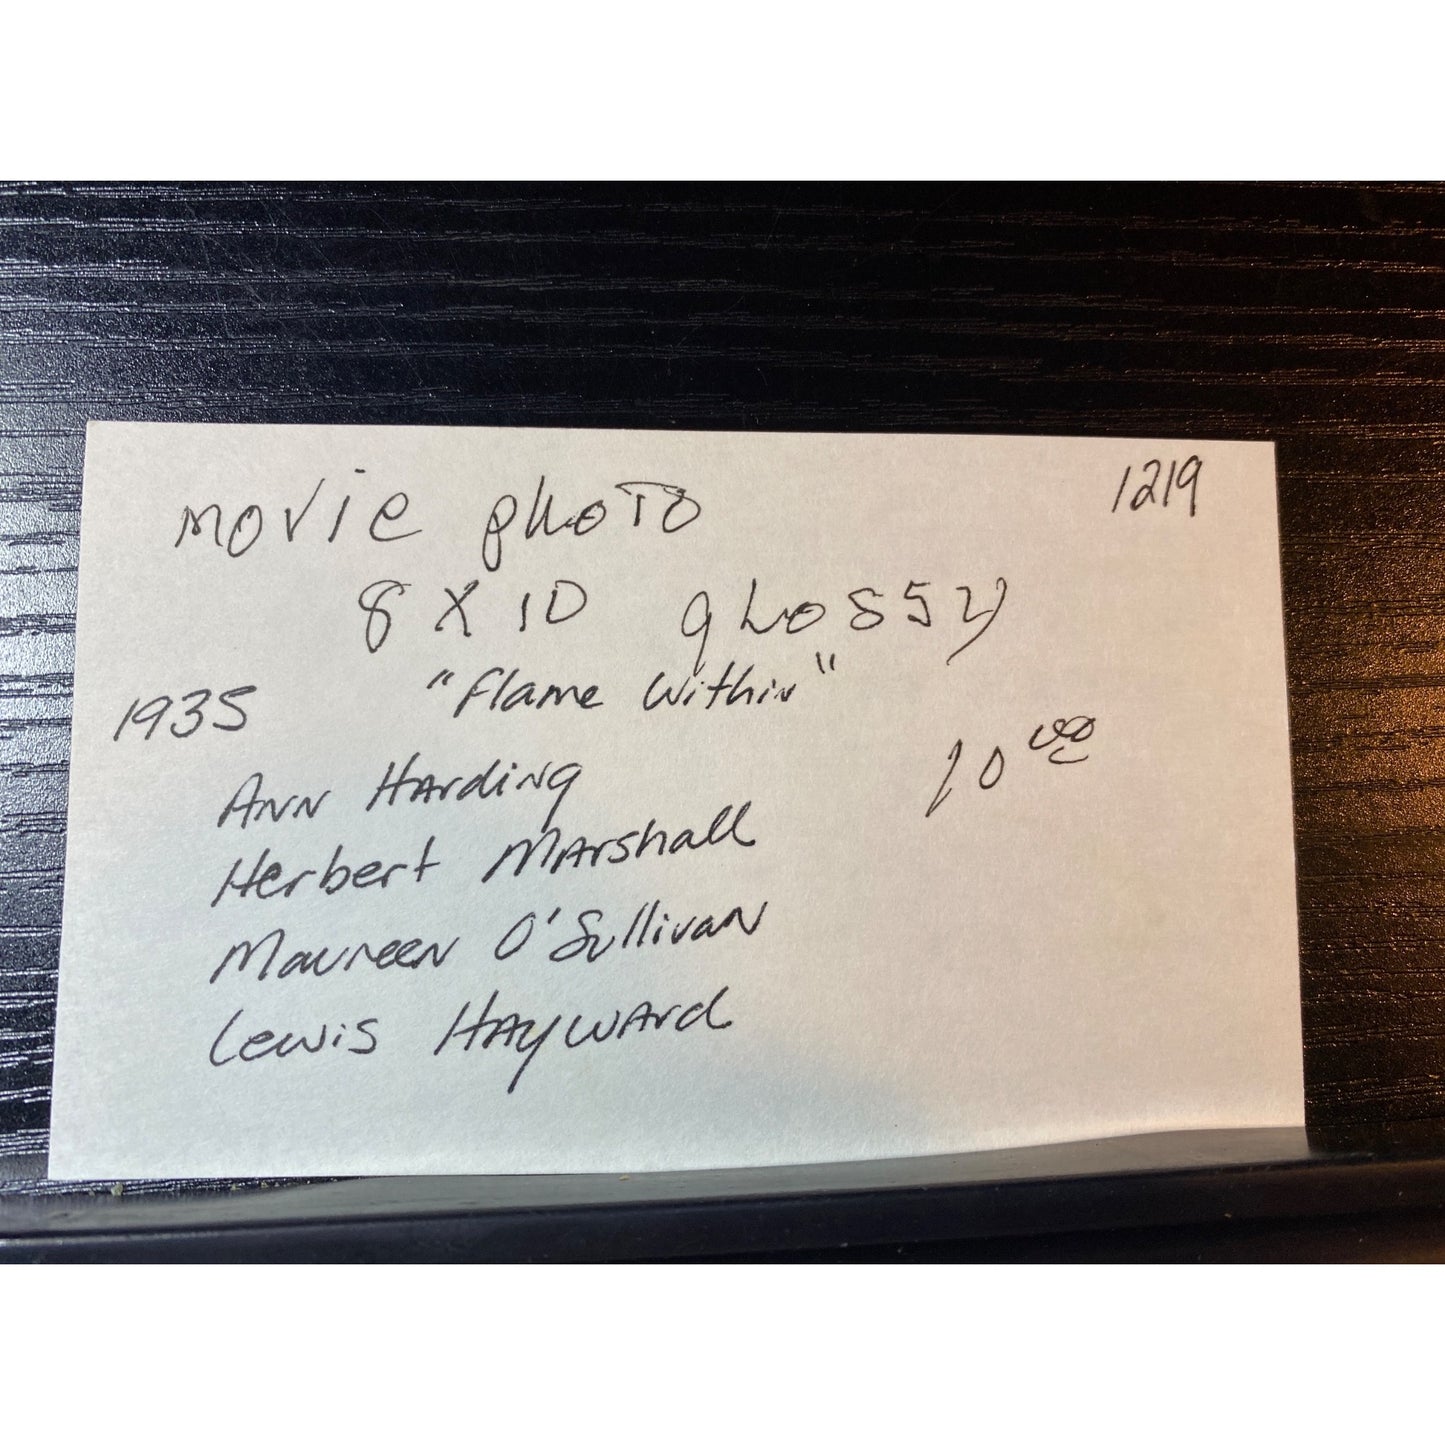 1219
movie photo
8 X 10 glossy
"Flame Within"
1935
10 00
Ann Harding
Herbert Marshall
Maureen O'Sullivan
Lewis Hayward